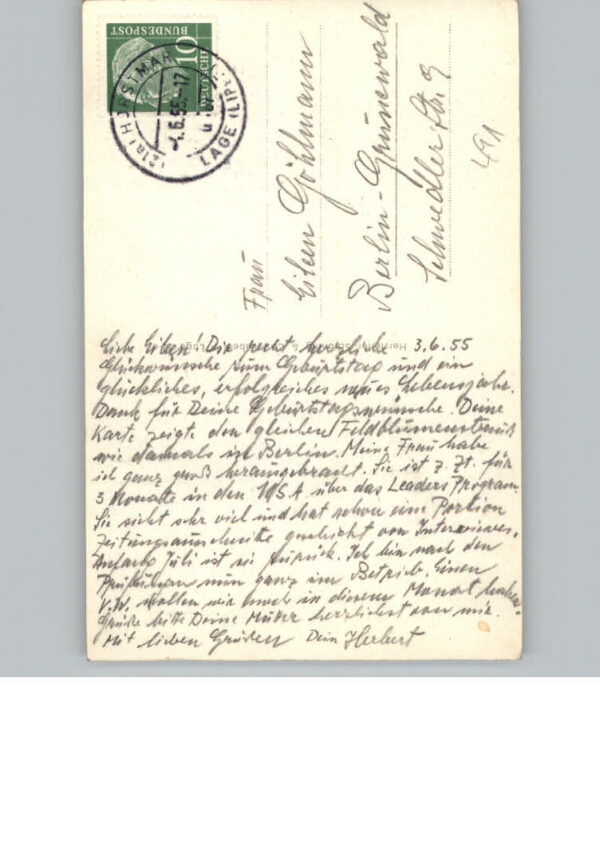 DEUTSCHE
BUNDESPOST
10
(21a) HORSTMAR
LAGE (LIPPE)
-4.6.55.-17
Frau
Eileen Göhlmann
Berlin-Grunewald
Schwedler Str. 9
491
3.6.55
Liebe Eileen! Die recht herzliche
Glückwünsche zum Geburtstag und ein
glückliches, erfolgreiches neues Lebensjahr.
Dank für Deine Geburtstagswünsche. Deine
Karte zeigt den gleichen Feldblumenstrauß
wie damals in Berlin. Meine Frau habe
ich ganz groß herausgebracht. Sie ist z. Zt. für
3 Monate in den USA über das Leaders Program.
Sie sieht sehr viel und hat schon eine Portion
Zeitungsausschnitte geschickt von Interviews.
Anfang Juli ist sie zurück. Ich bin nach den
Prüfungen nun ganz im Betrieb. Einen
V.W. wollen wir noch in diesem Monat
Grüße bitte Deine Mutter herzlichst von mir.
Mit lieben Grüßen Dein Herbert